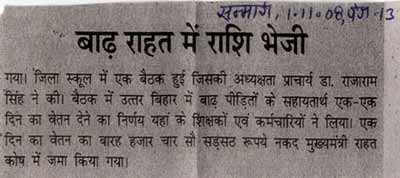 सन्मार्ग, 1.11.08, पेज-13
बाढ़ राहत में राशि भेजी
गया। जिला स्कूल में एक बैठक हुई जिसकी अध्यक्षता प्राचार्य डा. राजाराम
सिंह ने की। बैठक में उत्तर बिहार में बाढ़ पीड़ितों के सहायतार्थ एक-एक
दिन का वेतन देने का निर्णय यहां के शिक्षकों एवं कर्मचारियों ने लिया। एक
दिन का वेतन का बारह हजार चार सौ सड़सठ रूपये नकद मुख्यमंत्री राहत
कोष में जमा किया गया।